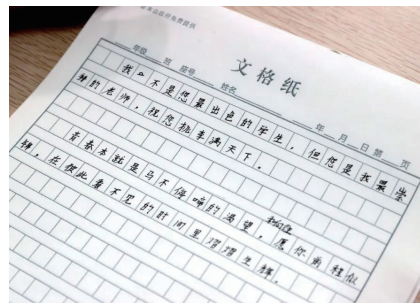 文格纸
年级 班 座号 姓名 年 月 日 第 页
我不是您最出色的学生，但您是我最崇
的老师，祝您桃李满天下。
青春本就是马不停蹄的渴望，愿你前程似
锦，在彼此看不见的时间里熠熠生辉。